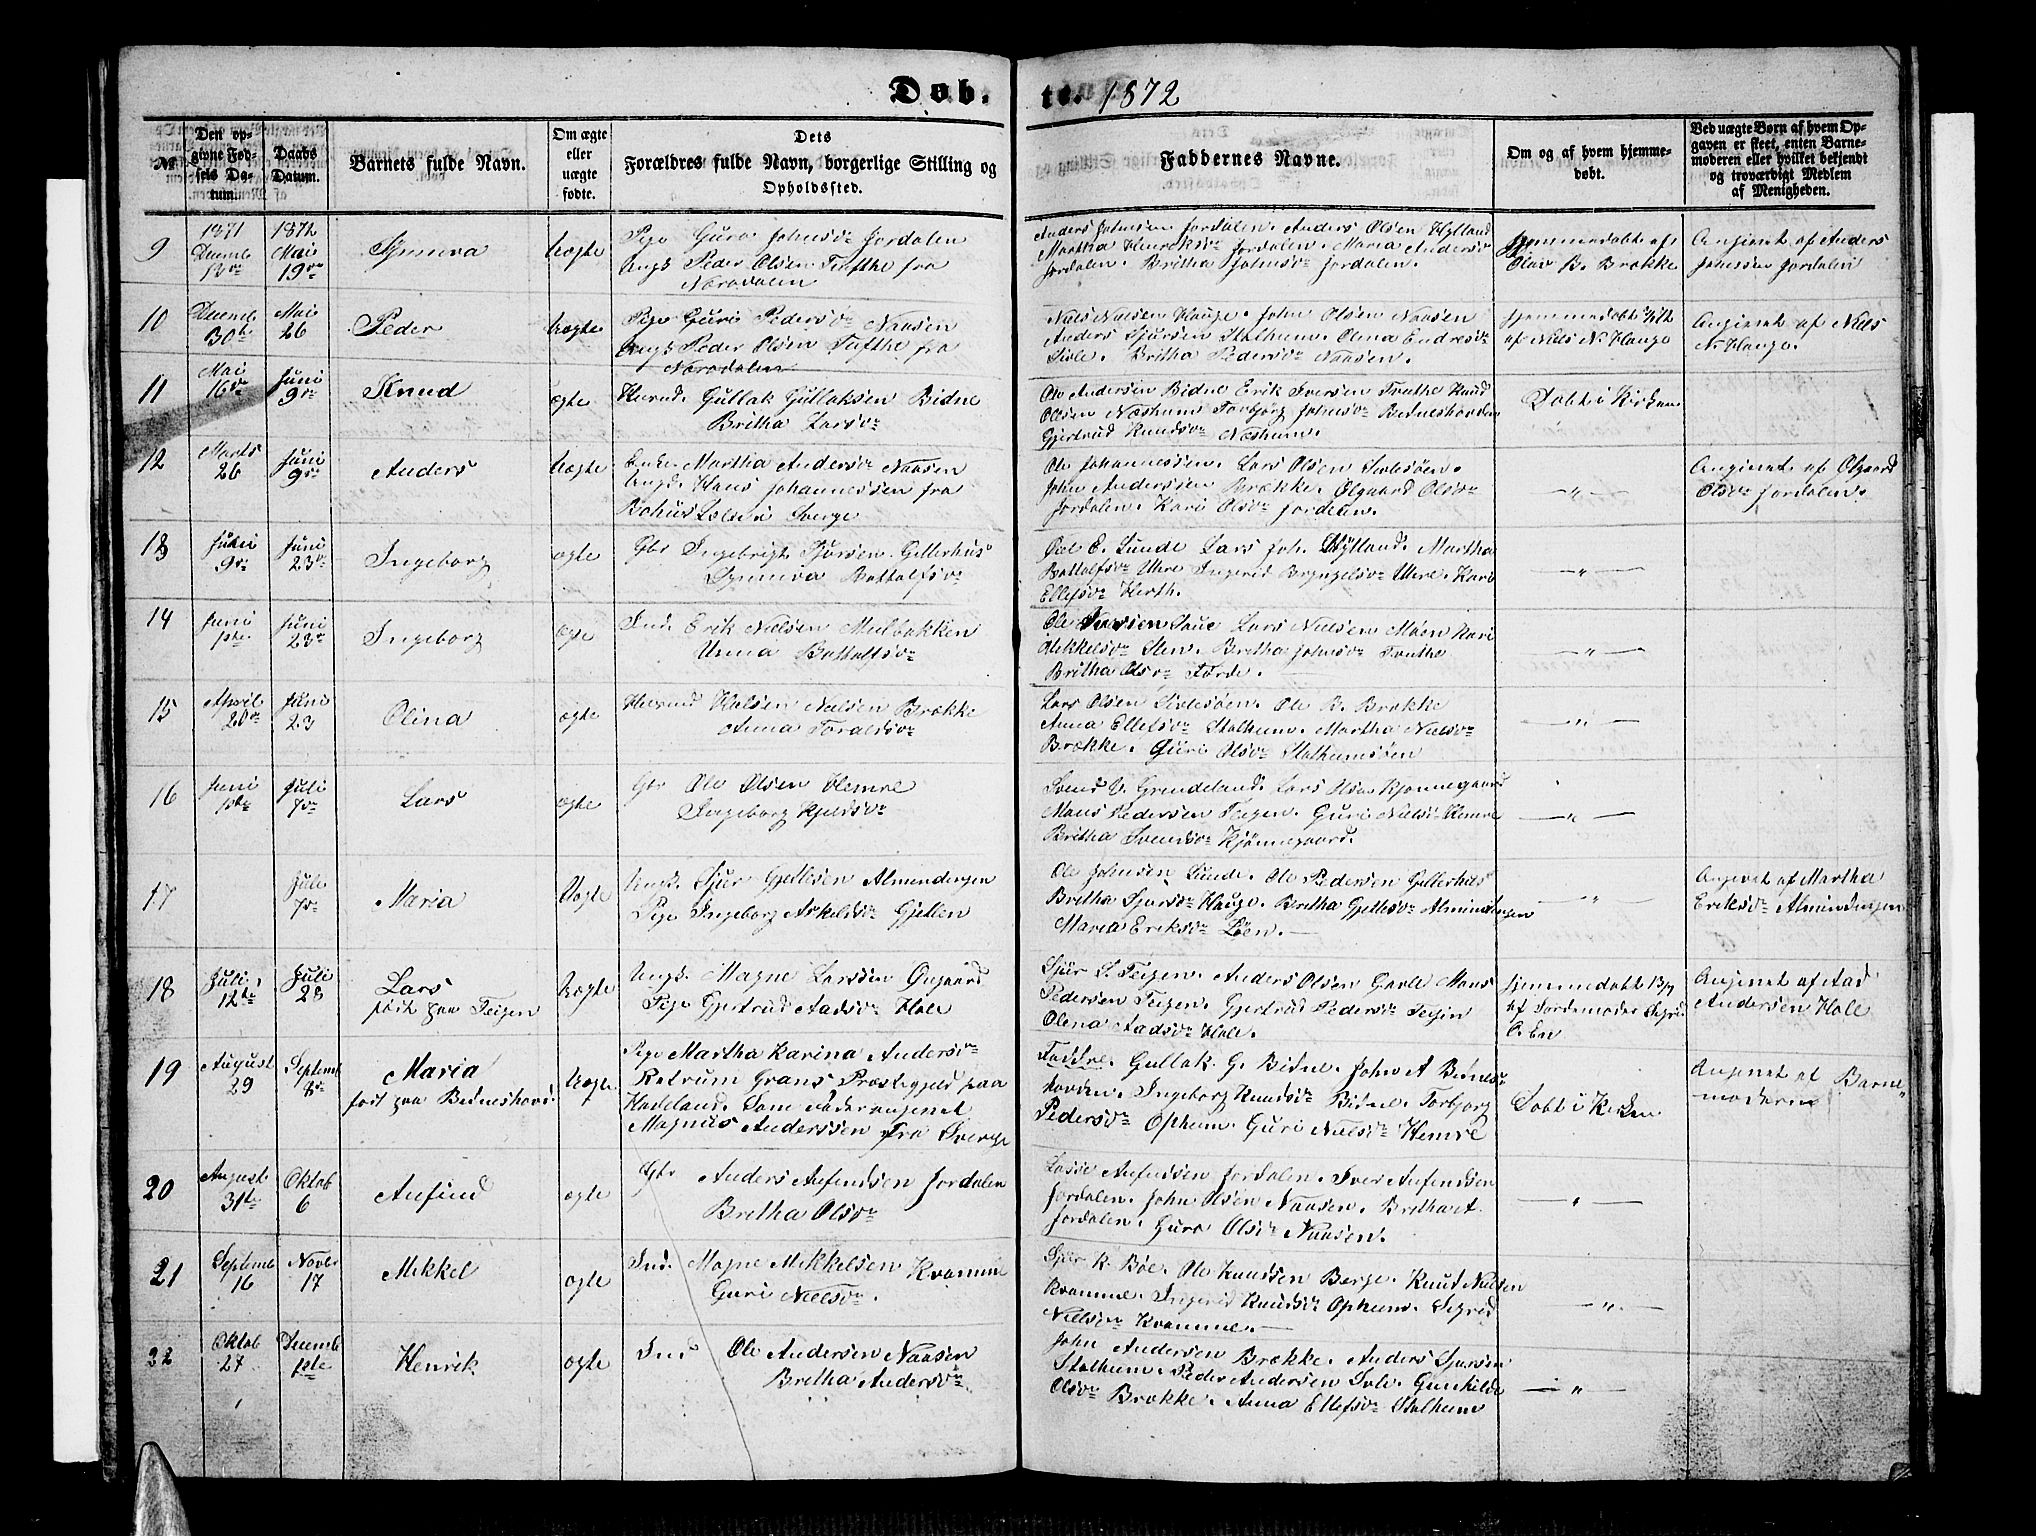 Døb. te. 1872
No
Den op-
givne Fød-
sels Da-
tum.
Daabs
Datum.
Barnets fulde Navn.
Om ægte
eller
uægte
fødte.
Dets
Forældres fulde Navn, borgerlige Stilling og
Opholdssted.
Faddernes Navne.
Om og af hvem hjemme-
døbt.
Ved uægte Børn af hvem Op-
gaven er skeet, enten Barne-
moderen eller hvilket bekjendt
og troværdigt Medlem
af Menigheden.
9
1871
Decemb
1872
Mai
19de
Synneva
Uægte
Pige Guro Johnsdr Jordalen
Ungk Peder Olsen Tufthe fra
Nærødalen
Anders Johnsen Jordalen. Anders Olsen Hylland
Martha Henriksdr Jordalen. Maria Andersdr
Jordalen. Britha Johnsdr Jordalen.
Hjemmedøbt af
Olav B. Brække
Angivet af Anders
Johnsen Jordalen
10
Decemb
30te
Mai
26
Peder
Uægte
Pige Guri Pedersdr Naasen
Ungk Peder Olsen Tufthe fra
Nærødalen
Niels Nielsen Hauge. John Olsen Naasen
Anders Sjursen Stalheim. Olena Endresdr
Sivle. Britha Pedersdr Naasen.
Hjemmedøbt
af Niels N. Hauge
Angivet af Niels
N. Hauge.
11
Mai
16de
Juni
9de
Knud
ægte
Husmd. Gullak Gullaksen Bidne
Britha Larsdr
Ole Andersen Bidne Erik Iversen Tvuthe Knud
Olsen Næsheim Torbjørg Johnsdr Bidneshovden
Gjertrud Knudsdr Næsheim.
Døbt i Kirken
12
Marts
26
Juni
9de
Anders
Uægte
Enke Martha Andersdr Naasen
Ungk Hans Johannessen fra
Bohus Lehn i Sverge
Ole Johannessen. Lars Olsen Sivlesøen.
John Andersen Brække. Olgaard Olsdr
Jordalen. Kari Olsdr Jordalen.
— " —
Angivet af Olgaard
Olsdr Jordalen.
13
Juni
9de
Juni
23de
Ingeborg
ægte
Gbr Ingebrigt Sjursen Gillerhus
Synneva Bottolfsdr
E. Lunde Lars Joh. Hylland. Martha
Bottolfsdr Uhre Ingerid Bryngelsdr Uhre. Kari
Ellefsdr Hirth.
— " —
14
Juni
1ste
Juni
23de
Ingeborg
ægte
Ind. Erik Nielsen Mulbakken
Unna Bottolfsdr
Ole Iversen Saue Lars Nielsen Møen Kari
Mikkelsdr Sten. Britha Johnsdr Tvuthe
Britha Olsdr Førde.
— " —
15
April
28de
Juni
23
Olina
ægte
Husmd Nielsen Brække
Anna Toraldsdr
Lars Olsen Sivlesøen. Ole B. Brække
Anna Ellefsdr Stalheim. Martha Nielsdr
Brække. Guri Olsdr Stalheimsøen
— " —
16
Juni
1ste
Juli
7de
Lars
ægte
Gbr Ole Olsen Hemre
Ingeborg Kjeldsdr
Svend V. Grindeland. Lars Olsen Kjønnegaard
Mons Pedersen Teigen. Guri Nielsdr Hemre
Britha Svendsdr Kjønnegaard.
— " —
17
Juli
7de
Maria
Uægte
Ungk. Sjur Gjetlesen Almendingen
Pige Ingeborg Askeldsdr Gjellen
Ole Johnsen Lunde. Ole Pedersen Gillerhus
Britha Sjursdr Hauge. Britha Gjetlesdr Almindingen
Maria Eriksdr Løen. —
— " —
Angivet af Martha
Eriksdr Almindingen
18
Juli
12te
Juli
28
Lars
født paa Teigen
Uægte
Ungk. Magne Larssen Øigaard
Pige Gjertrud Aadsdr Hole
Sjur S. Teigen. Anders Olsen Gavle Mons
Pedersen Teigen. Gjertrud Pedersdr Teigen
Olena Aadsdr Hole.
Hjemmedøbt
af Jordemoder
Angivet af Aad
Andersen Hole
19
August
29
Septemb
8de
Maria
født paa Bidneshovd
Uægte
Pige Martha Karina Andersdr
Rotrum Grans Præstegjeld paa
Hadeland. Som Fader angivet
Magnus Anderssen fra Sverge
Faddre. Gullak G. Bidne. John A Bidnes-
hovden. Ingeborg Knudsdr Bidne. Torbjørg
Pedersdr Opheim. Guri Nielsdr Hemre
Døbt i Kirken
Angivet af Barne
moderen
20
August
31te
Oktob
6
Anfind
ægte
Gbr Anders Anfindsen Jordalen
Britha Olsdr
Lasse Anfindsen Jordalen. Iver Anfindsen
Jordalen. John Olsen Naasen. Britha A.
Jordalen. Guro Olsdr Naasen.
— " —
21
Septemb
16
Novbr
17
Mikkel
ægte
Ind. Magne Mikkelsen Kvamme
Guri Nielsdr.
Sjur K. Bøe. Ole Knudsen Berge. Knut Nielsen
Kvamme. Ingerid Knudsdr Opheim. Sigrid
Nielsdr Kvamme. —
— " —
22
Oktob
27
Decemb
1ste
Henrik
ægte
Ind Ole Andersen Naasen
Britha Andersdr
John Andersen Brække. Anders Sjursen
Stalheim. Peder Andersen Sivle. Gunhilde
Olsdr Brække. Anna Ellefsdr Stalheim
— " —